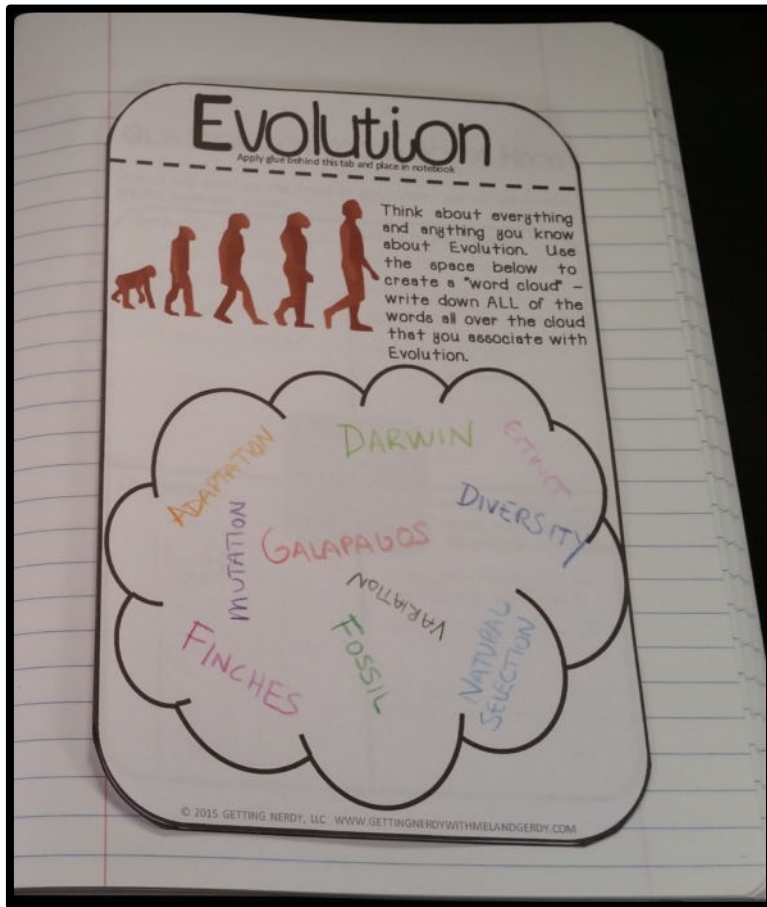 Evolution
Apply glue behind this tab and place in notebook
Think about everything
and anything you know
about Evolution. Use
the space below to
create a "word cloud" –
write down ALL of the
words all over the cloud
that you associate with
Evolution.
DARWIN
EXTINCT
ADAPTATION
DIVERSITY
MUTATION
GALAPAGOS
VARIATION
FINCHES
FOSSIL
NATURAL
SELECTION
© 2015 GETTING NERDY, LLC WWW.GETTINGNERDYWITHMELANDGERDY.COM